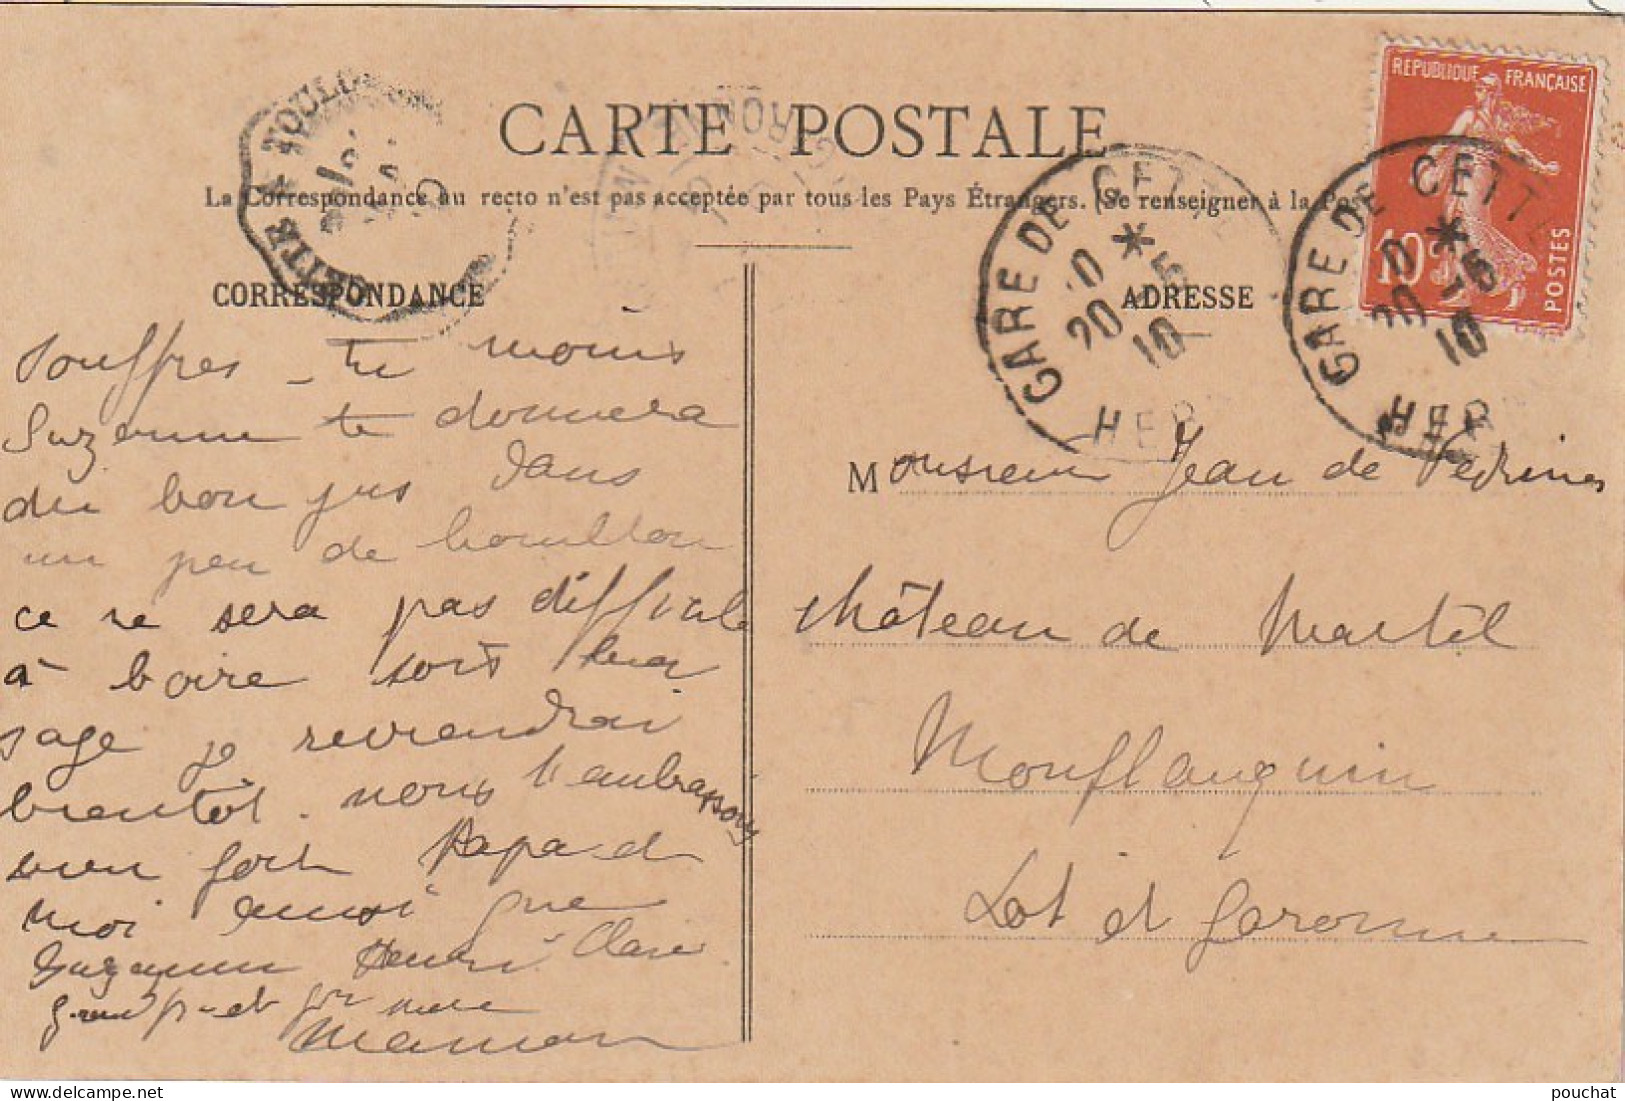 CARTE POSTALE
La Correspondance au recto n'est pas acceptée par tous les Pays Étrangers. (Se renseigner à la Pos
CORRESPONDANCE
souffres-tu moins
Suzanne te donnera
du bon jus dans
un peu de bouillon
ce ne sera pas difficile
à boire sois bien
sage je reviendrai
bientôt. nous t'embrassons
bien fort Papa et
moi aussi que
Suzanne Henri Claire
grand p. et gr mere
Maman
ADRESSE
Monsieur Jean de Vedrines
château de Martel
Monflanquin
Lot et Garonne
REPUBLIQUE FRANÇAISE
10c
POSTES
GARE DE CETTE
20 -5
10
HER
GARE DE CETTE
20 -5
10
HER
CETTE A TOULO
GARONNE
pouchat